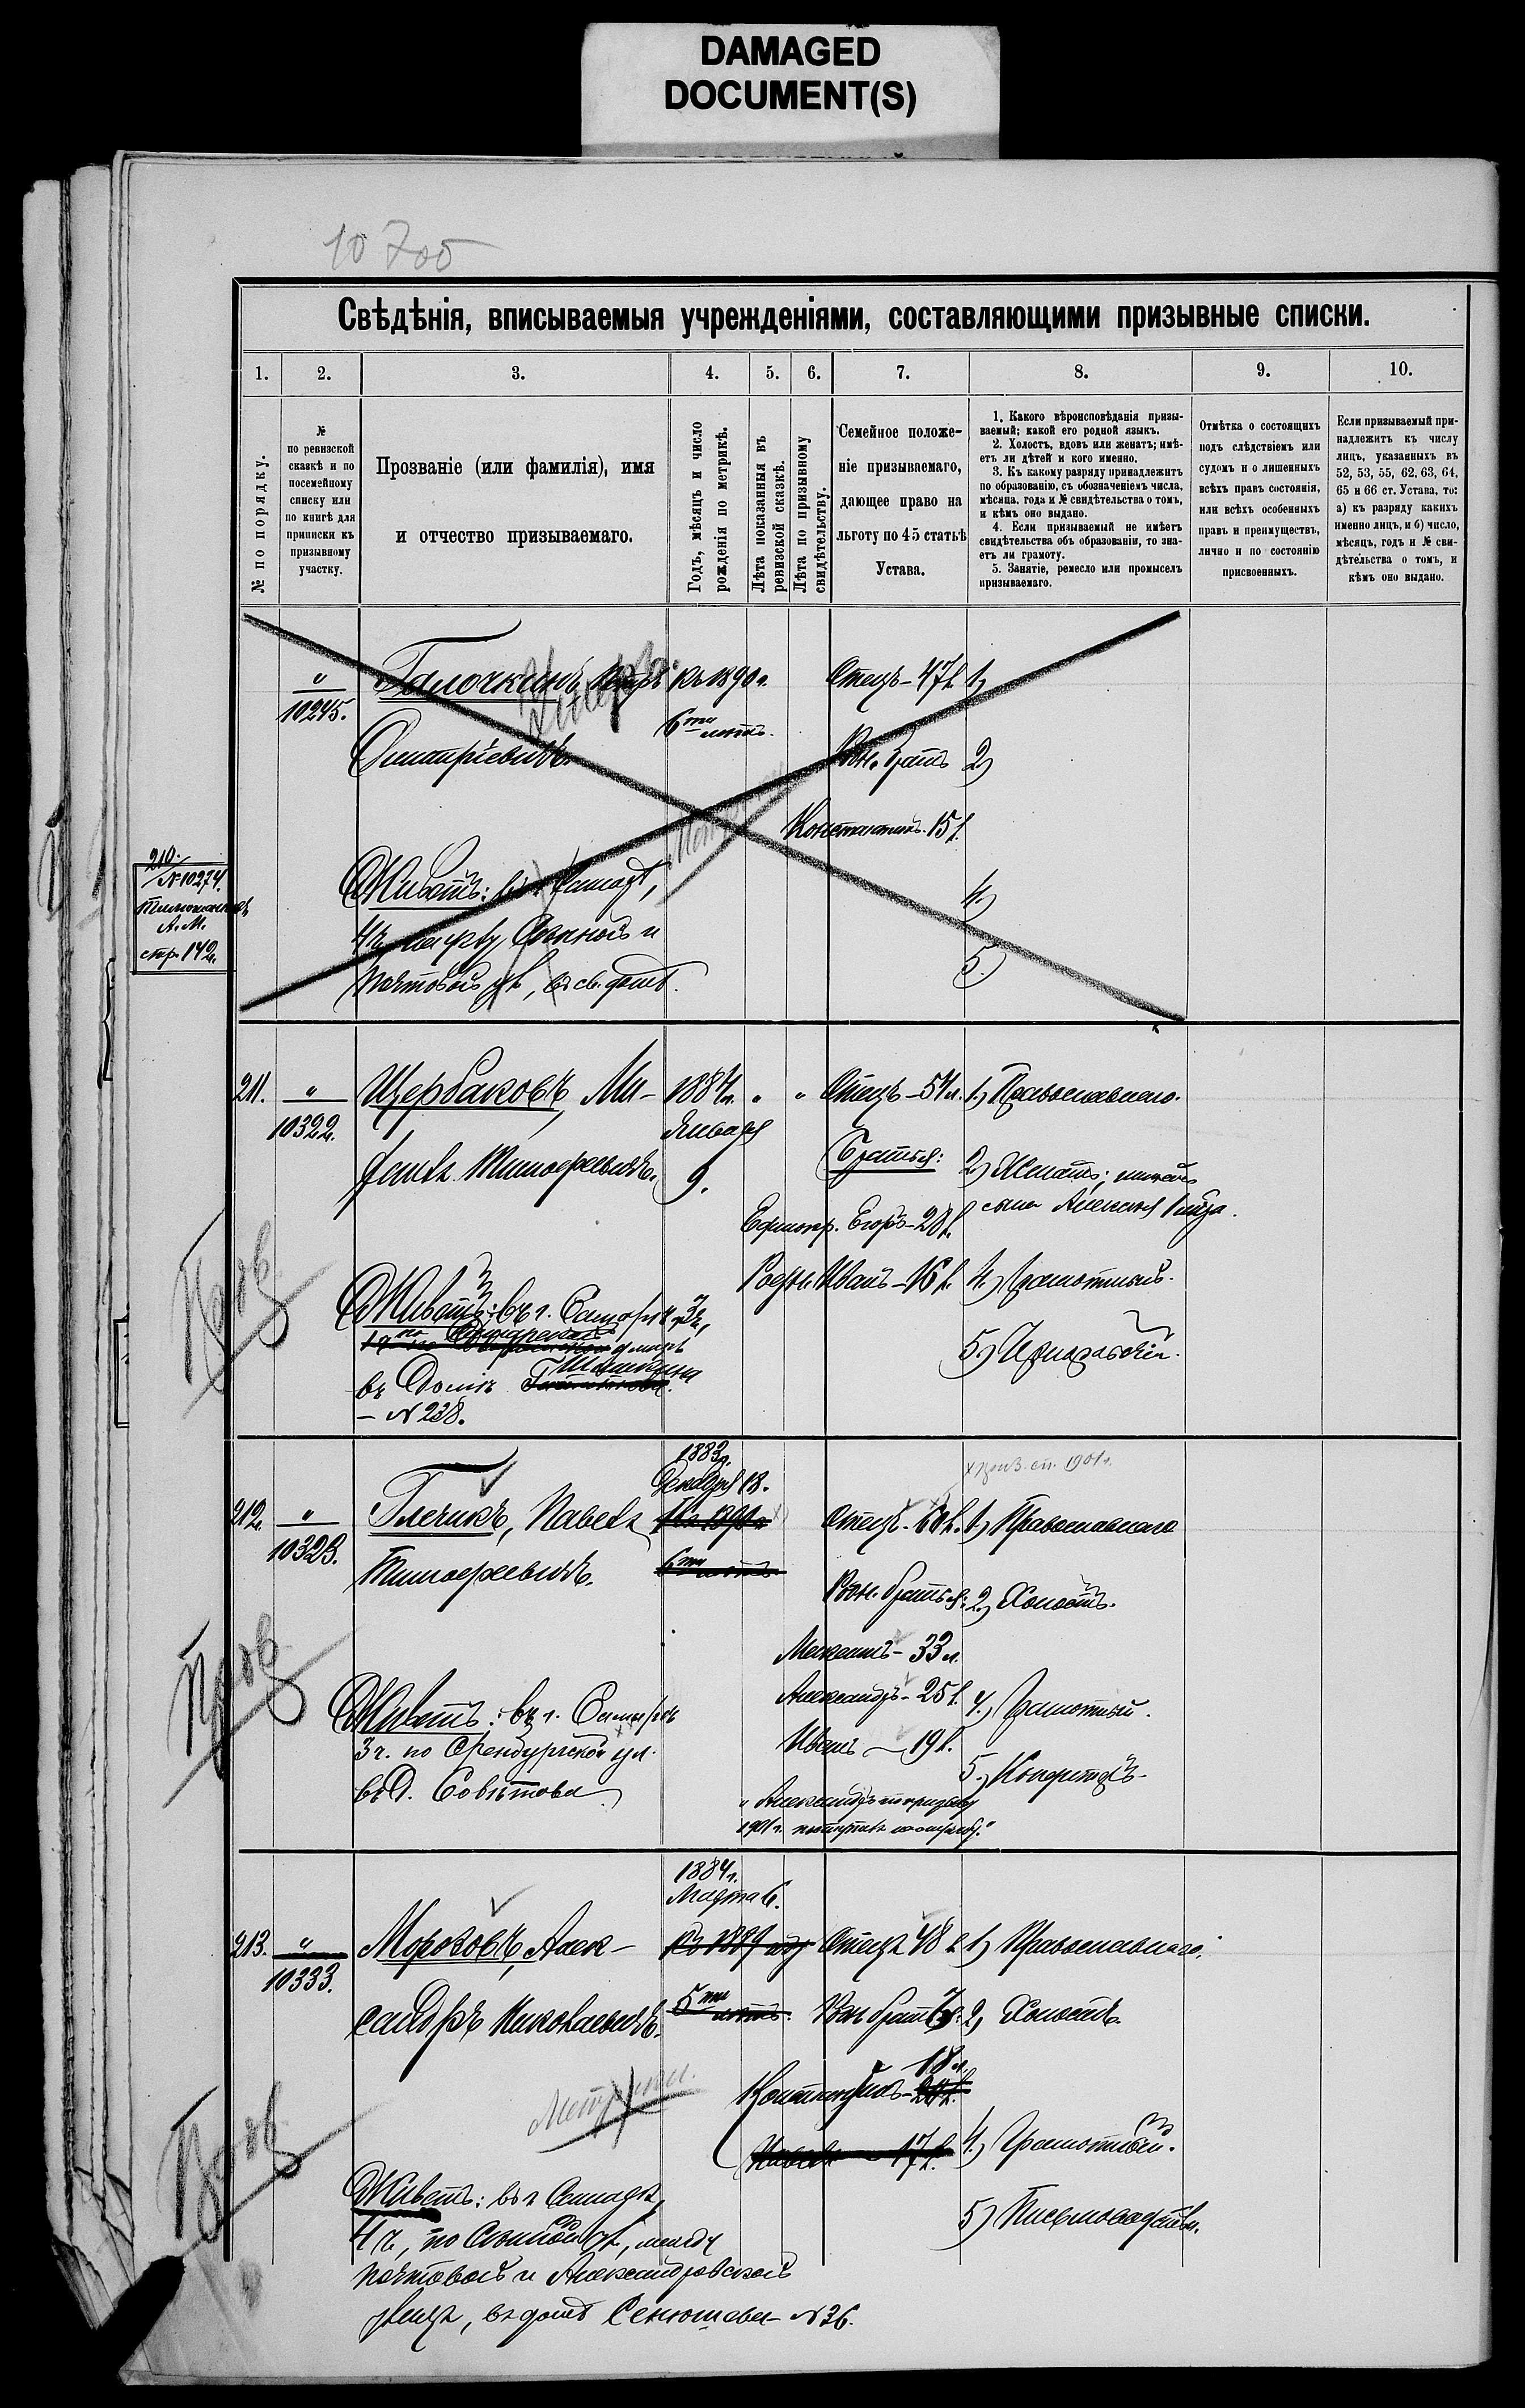 DAMAGED
DOCUMENT(S)
10700
Свѣдѣнія, вписываемыя учрежденіями, составляющими призывные списки.
1. 2. 3. 4. 5. 6. 7. 8. 9. 10.
№ по порядку.
№
по ревизской
сказкѣ и по
посемейному
списку или
по книгѣ для
приписки къ
призывному
участку.
Прозваніе (или фамилія), имя
и отчество призываемаго.
Годъ, мѣсяцъ и число
рожденія по метрикѣ.
Лѣта показанныя въ
ревизской сказкѣ.
Лѣта по призывному
свидѣтельству.
Семейное положе-
ніе призываемаго,
дающее право на
льготу по 45 статьѣ
Устава.
1. Какого вѣроисповѣданія призы-
ваемый; какой его родной языкъ.
2. Холостъ, вдовъ или женатъ; имѣ-
етъ ли дѣтей и кого именно.
3. Къ какому разряду принадлежитъ
по образованію, съ обозначеніемъ числа,
мѣсяца, года и № свидѣтельства о томъ,
и кѣмъ оно выдано.
4. Если призываемый не имѣетъ
свидѣтельства объ образованіи, то зна-
етъ ли грамоту.
5. Занятіе, ремесло или промыселъ
призываемаго.
Отмѣтка о состоящихъ
подъ слѣдствіемъ или
судомъ и о лишенныхъ
всѣхъ правъ состоянія,
или всѣхъ особенныхъ
правъ и преимуществъ,
лично и по состоянію
присвоенныхъ.
Если призываемый при-
надлежитъ къ числу
лицъ, указанныхъ въ
52, 53, 55, 62, 63, 64,
65 и 66 ст. Устава, то:
а) къ разряду какихъ
именно лицъ, и б) число,
мѣсяцъ, годъ и № сви-
дѣтельства о томъ, и
кѣмъ оно выдано.
"
10245.
Галочкинъ, Петръ
Дмитріевичъ.
Живетъ: въ г. Самарѣ,
4 ч.
Почтовой ул., въ св. домѣ.
Къ 1890 г.
6ти лѣтъ.
Отецъ - 47 л.
Родн. братъ
Константинъ. 15 л.
1)
2)
4)
5)
210.
№ 10274.
А. М.
стр. 142.
211.
"
10322.
Щербаковъ, Ми-
хаилъ Тимофеевичъ.
Живетъ: въ г. Самарѣ 3 ч,
улицѣ
въ домѣ Шашкина
— № 238.
1884 г.
Января
9.
" "
Отецъ - 54 л.
Братья:
Единокр. Егоръ - 28 л.
Родн. Иванъ - 16 л.
1.) Православнаго.
2) Женатъ; имѣетъ
сына Алексѣя 1 года.
4.) Грамотный.
5.) Чернорабочій.
212.
"
10323.
Глечикъ, Павелъ
Тимофеевичъ.
Живетъ: въ г. Самарѣ
3 ч. по Оренбургской ул.
въ д. Совѣтова
1883 г.
Декабря 18.
6ти лѣтъ
Отецъ - 60 л.
Родн. братья:
33 л.
Александръ - 25 л.
Иванъ — 19 л.
" Александръ по призыву
1901 г.
х приз. сп. 1901 г.
1.) Православнаго
2.) Холостъ.
4.) Грамотный.
5.)
213.
"
10333.
Морозовъ, Алек-
сандръ Николаевичъ.
Метрики.
Живетъ: въ г. Самарѣ,
4 ч, по Соляной ул, между
Почтовой и Александровской
улицъ, въ домѣ Сенюшева № 36.
1884 г.
Марта 6.
Къ 1889 году
5ти лѣтъ.
Отецъ 48 л
Родн. братья:
18 л.
Константинъ - 20 л.
Павелъ — 17 л.
1) Православнаго.
2) Холостъ
4.) Грамотный.
5) Письмоводитель.